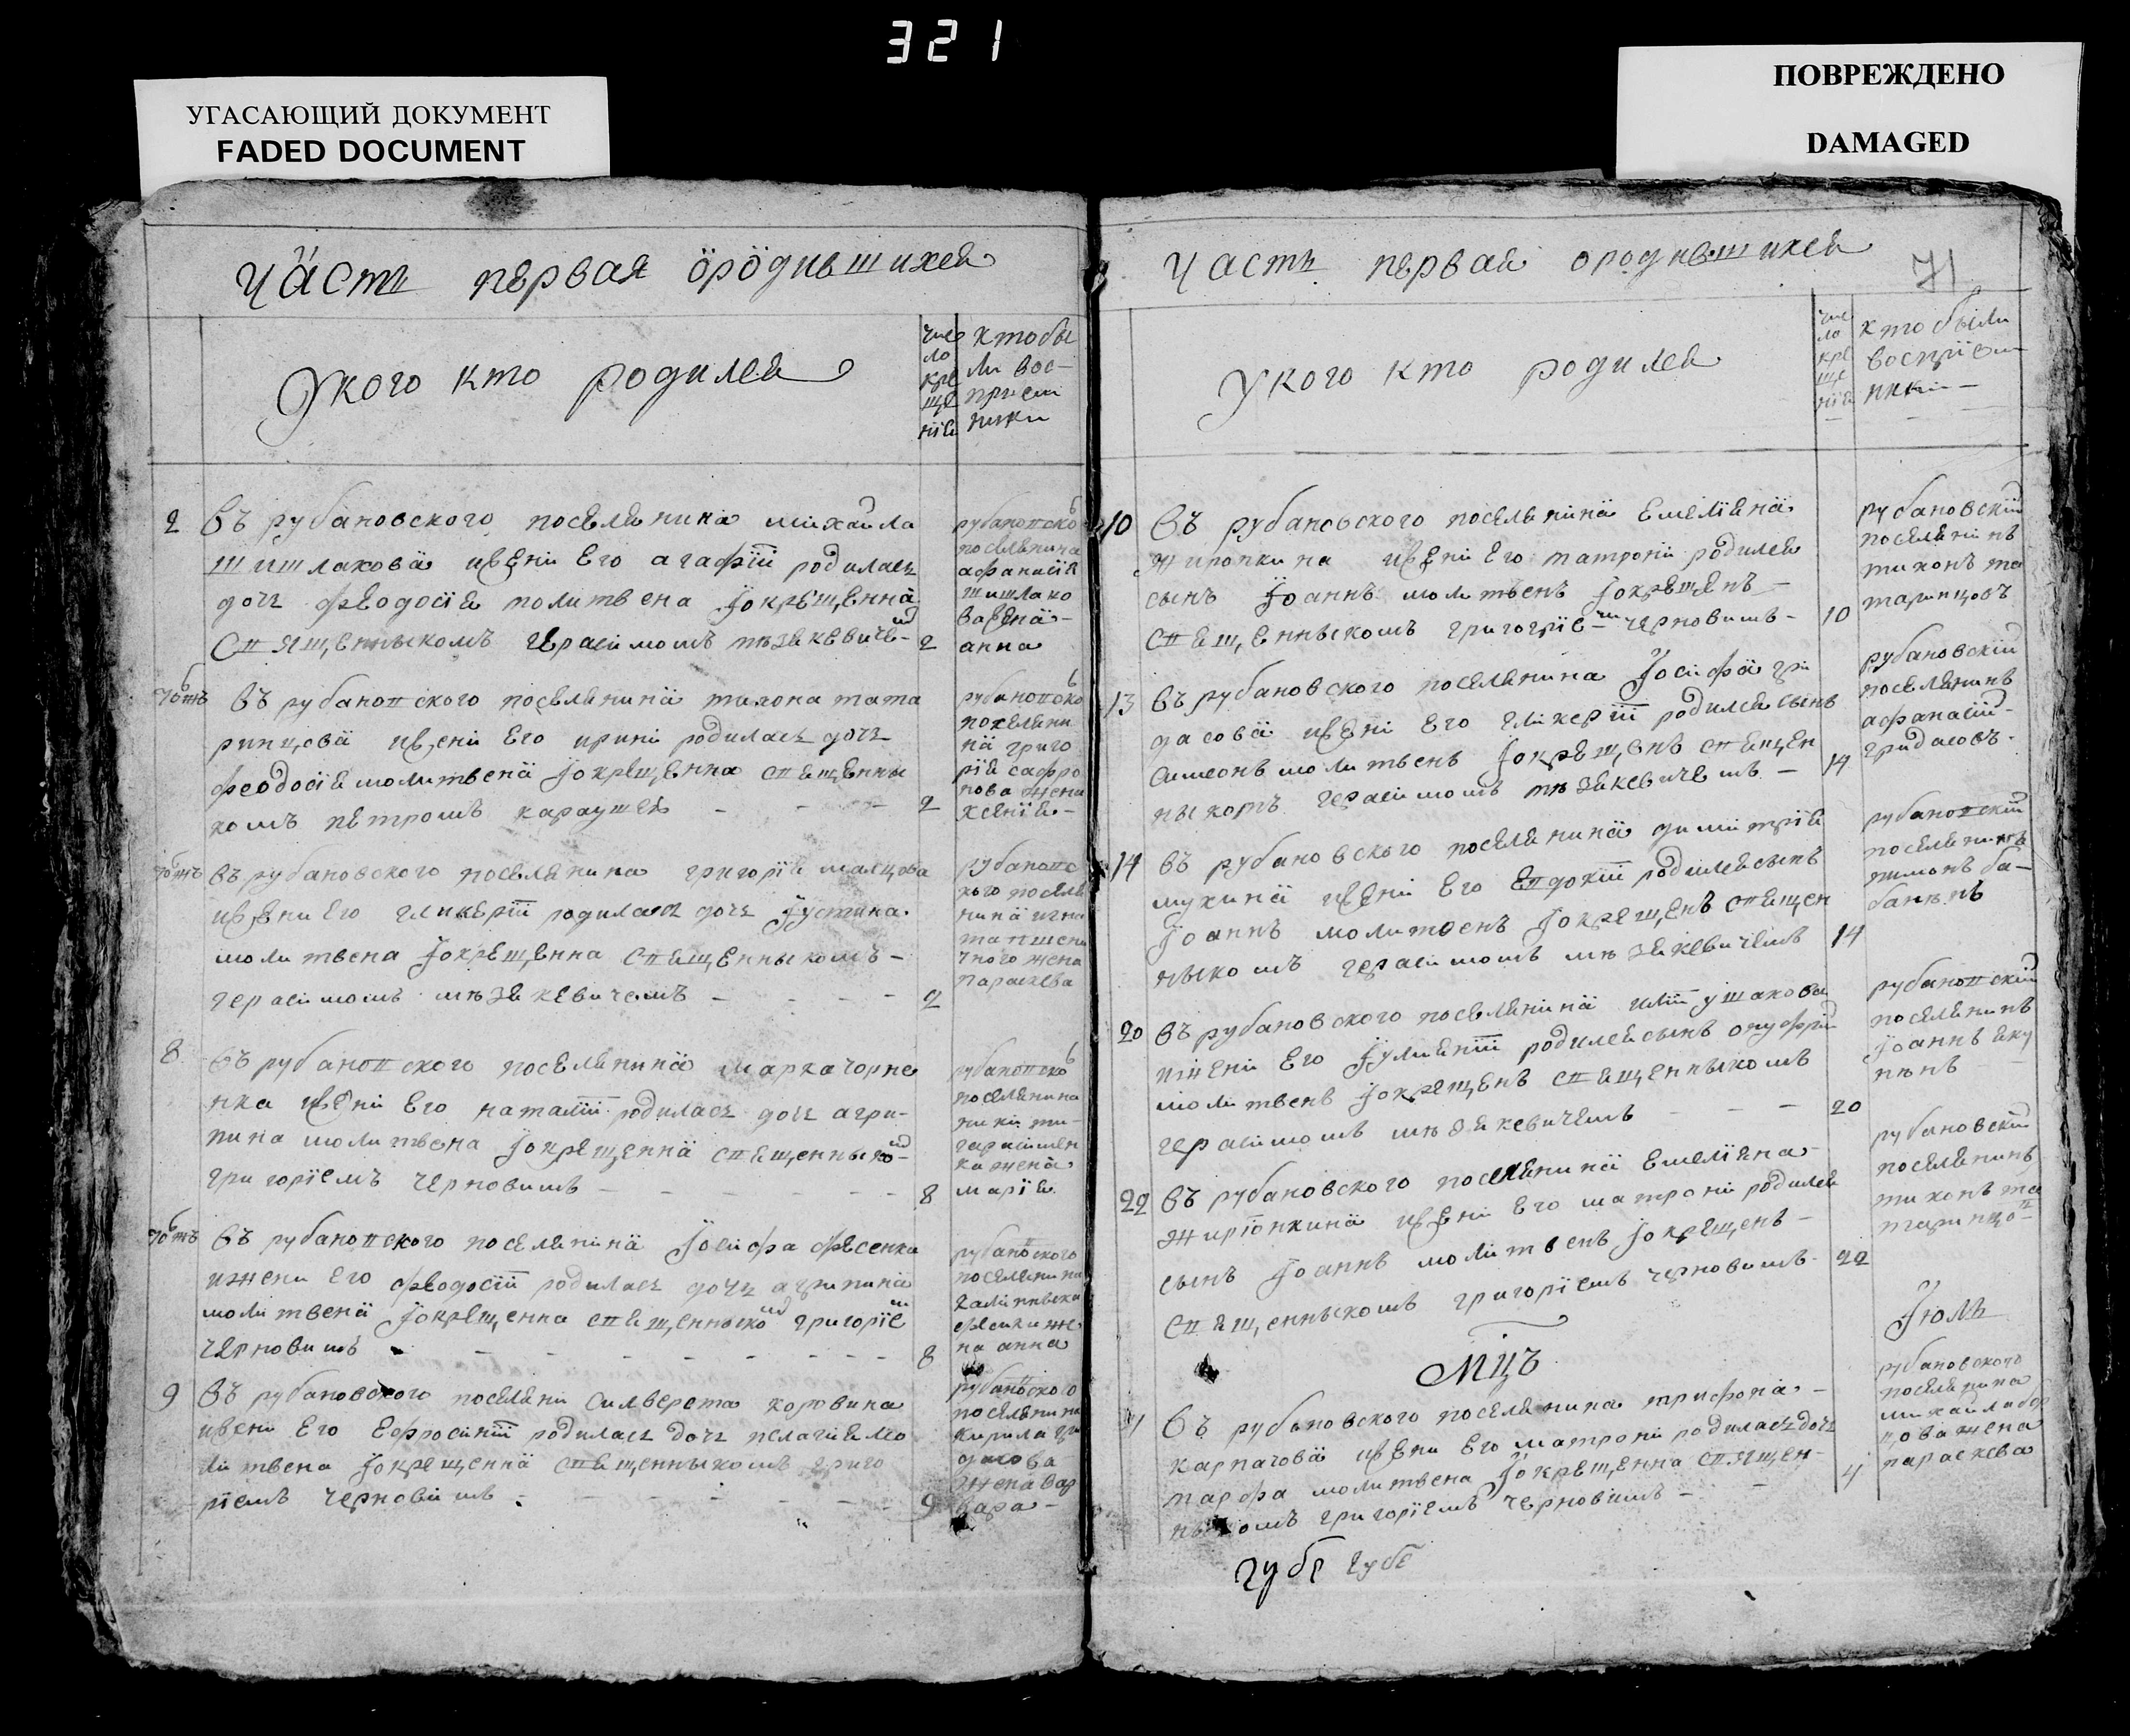 321
УГАСАЮЩИЙ ДОКУМЕНТ
FADED DOCUMENT
ПОВРЕЖДЕНО
DAMAGED
Часть первая ородившихся
Укого кто родился
чис
ло
кре
ще
нїя
кто бы
ли вос-
прием
ники
2
въ рубановского поселянина михаила
шишлакова ижени его агафїи родилась
дочь феодосїя молитвена їокрещенна
священныкомъ герасимомъ
2
рубановско
поселянина
афанасїя
шишлако
ва жена
анна
въ рубановского поселянина тихона тата
ринцова ижени его ирині родилась дочь
феодосїя молитвена їокрещенна священны
комъ петромъ
2
рубановско
поселяни
на григо
рїя сафро
нова жена
ксенїя
въ рубановского поселянина григорїя
ижени его гликерїи родилась дочь їустина
молитвена їокрещенна священныкомъ
герасимомъ
2
рубановс
кого поселя
нина игна
та пшени
чного жена
параскева
8
въ рубановского поселянина марка чорне
нка ижени его наталїи родилась дочь агри-
пина молитвена їокрещенна священныко
григорїемъ черновимъ
8
рубановско
поселянина
жена
марїя
въ рубановского поселянина їосифа фесенка
ижени его феодосїи родилась дочь агрипина
молитвена їокрещенна священныко григорїе
черновимъ
8
рубановского
поселянина
на анна
9
въ рубановского поселяни силверста коровина
ижени его ефросинїи родилась дочь пелагїя мо
литвена їокрещенна священныкомъ григо
рїемъ черновимъ
9
рубановского
поселянина
кирила гри
дасова
жена вар
вара
Часть первая ородившихся
71
Укого кто родился
чис
ло
кре
ще
нїя
кто были
воспрїем
ники
10
въ рубановского поселянина емелїяна
жиропкина ижени его матрони родился
сынъ їоаннъ молитвенъ їокрещенъ
священныкомъ григорїе черновимъ
10
рубановский
поселянинъ
тихонъ та
таринцовъ
13
въ рубановского поселянина їосифа гри
дасова ижени его гликерїи родился сынъ
симеонъ молитвенъ їокрещенъ священ
ныкомъ герасимомъ
14
рубановский
поселянинъ
афанасїй
гридасовъ
14
въ рубановского поселянина димитрїя
мухина ижени его евдокїи родился сынъ
їоаннъ молитвенъ їокрещенъ священ
ныкомъ герасимомъ
14
рубановский
поселянинъ
20
въ рубановского поселянина илїи ушакова
їжени его їулиянїи родился сынъ онуфрїй
молитвенъ їокрещенъ священныкомъ
герасимомъ
20
рубановский
поселянинъ
їоаннъ яку
нинъ
22
въ рубановского поселянина емелїяна
жиропкина ижени его матрони родился
сынъ їоаннъ молитвенъ їокрещенъ
священныкомъ григорїемъ черновимъ
22
рубановский
поселянинъ
тихонъ та
таринцо
Мцъ
Їюль
4
въ рубановского поселянина трифона
карпачова ижени его матрони родилась дочь
марфа молитвена їокрещенна священ-
ныкомъ григорїемъ черновимъ
4
рубановского
поселянина
михаила
жена
параскева
губе губе